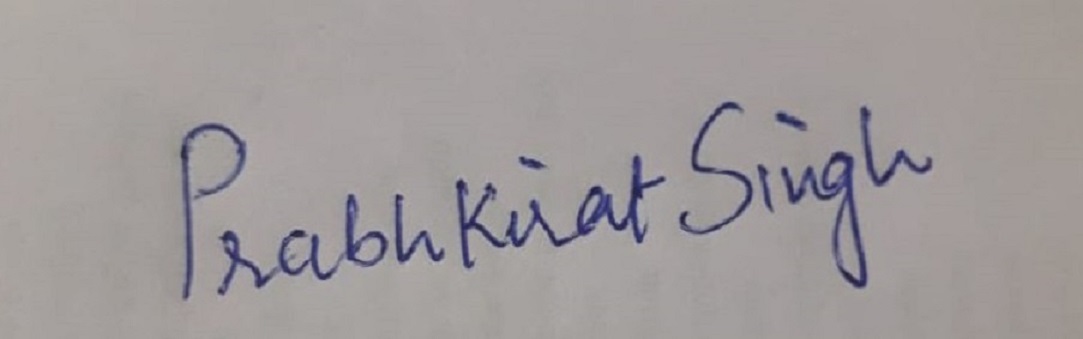 Prabhkirat Singh